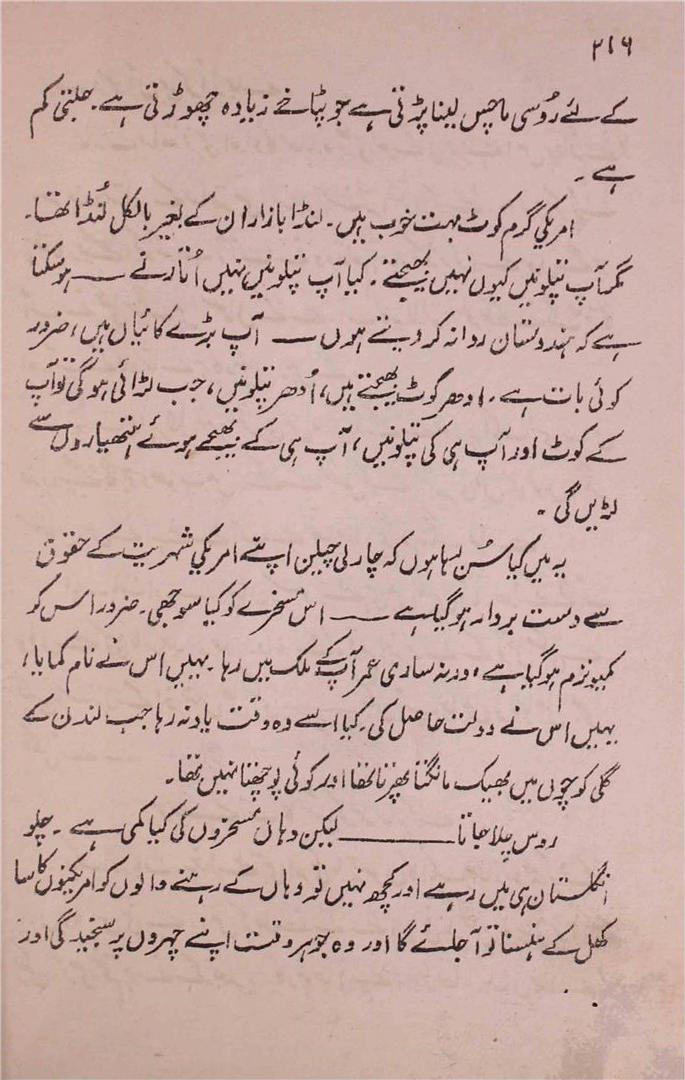 ۲۱۶
کے لئے رُوسی ماچس لینا پڑتی ہے جو پٹاخے زیادہ چھوڑتی ہے۔ جلتی کم
ہے۔
امریکی گرم کوٹ بہت خوب ہیں۔ لنڈا بازار ان کے بغیر بالکل لُنڈا تھا۔
مگر آپ پتلونیں کیوں نہیں بھیجتے۔ کیا آپ پتلونیں نہیں اُتارتے ـــ ہو سکتا
ہے کہ ہندوستان روانہ کر دیتے ہوں ـــ آپ بڑے کائیاں ہیں، ضرور
کوئی بات ہے۔ ادھر کوٹ بھیجتے ہیں، اُدھر پتلونیں، جب لڑائی ہو گی تو آپ
کے کوٹ اور آپ ہی کی پتلونیں، آپ ہی کے بھیجے ہوئے ہتھیاروں سے
لڑیں گی۔
یہ میں کیا سُن رہا ہوں کہ چارلی چپلن اپنے امریکی شہریت کے حقوق
سے دست بردار ہو گیا ہے ـــ اس مسخرے کو کیا سوجھی۔ ضرور اس کو
کمیونزم ہو گیا ہے، ورنہ ساری عمر آپ کے ملک میں رہا۔ یہیں اس نے نام کمایا،
یہیں اس نے دولت حاصل کی۔ کیا اسے وہ وقت یاد نہ رہا جب لندن کے
گلی کوچوں میں بھیک مانگتا پھرتا تھا اور کوئی پوچھتا نہیں تھا۔
روس چلا جاتا ـــــــ لیکن وہاں مسخروں کی کیا کمی ہے۔ چلو
انگلستان ہی میں رہے اور کچھ نہیں تو وہاں کے رہنے والوں کو امریکیوں کا سا
کھل کے ہنسنا تو آجائے گا اور وہ جو ہر وقت اپنے چہروں پر سنجیدگی اور